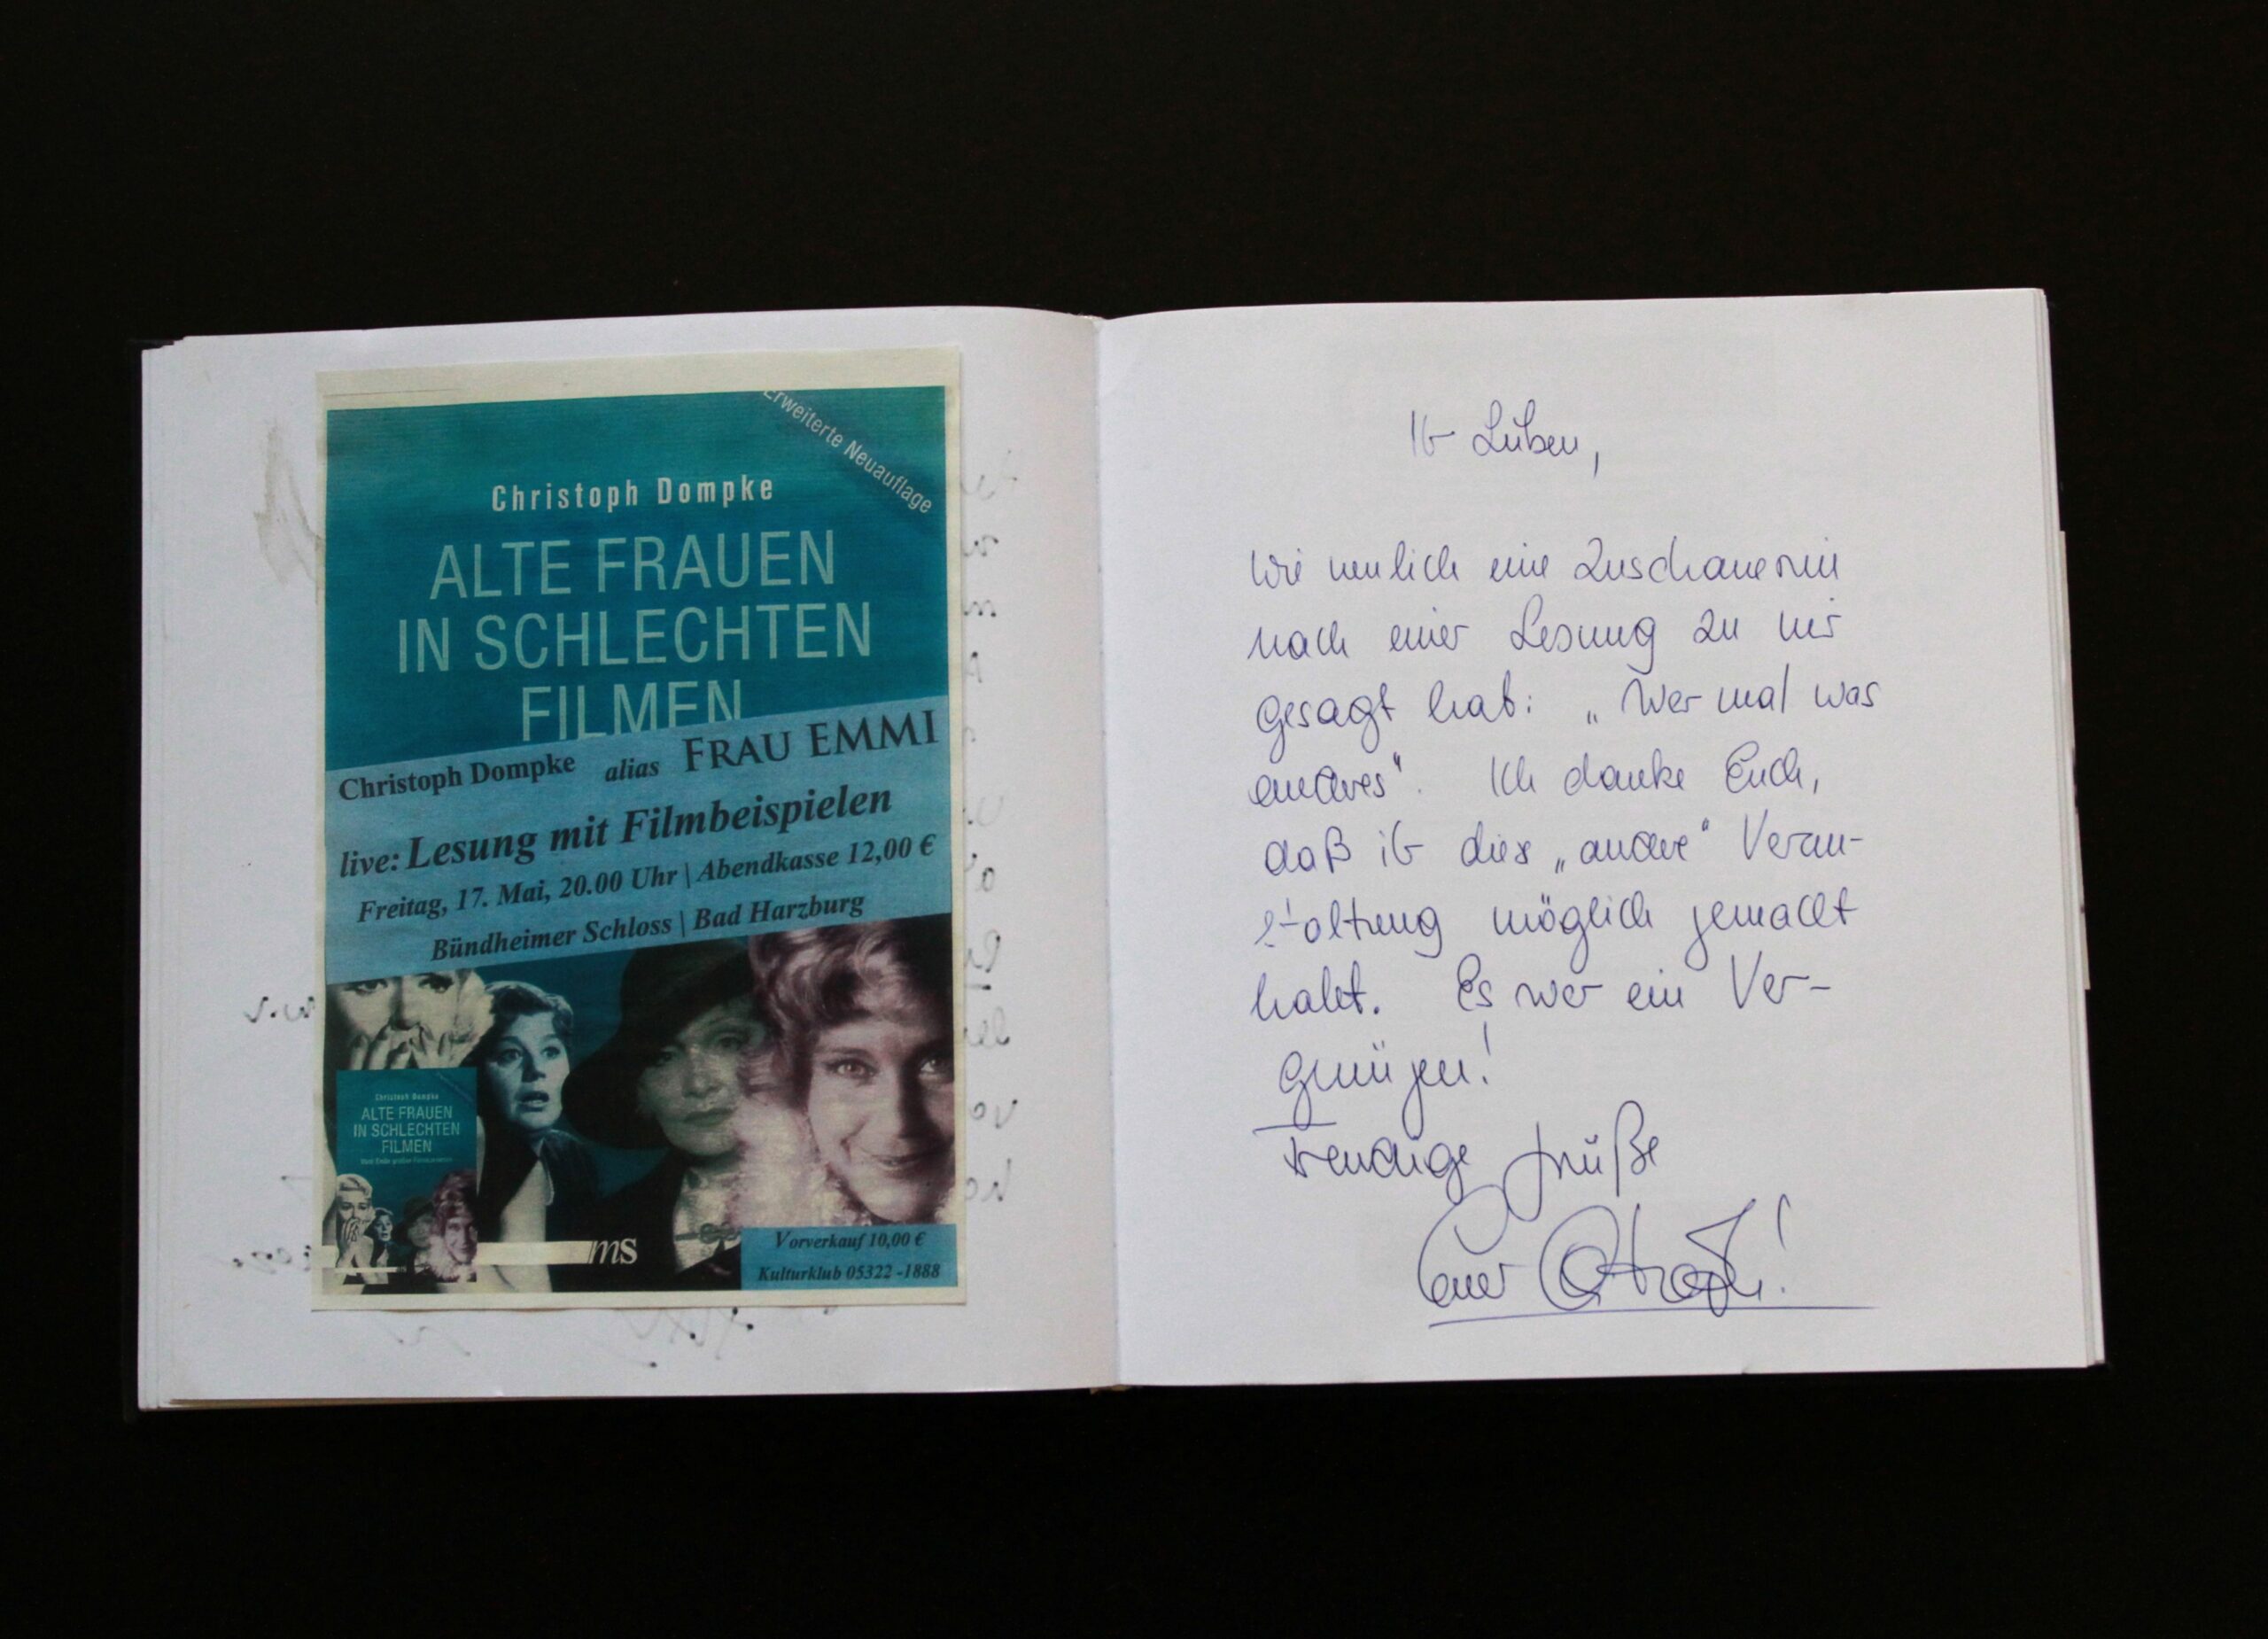 Erweiterte Neuauflage
Christoph Dompke
ALTE FRAUEN
IN SCHLECHTEN
FILMEN
Christoph Dompke alias FRAU EMMI
live: Lesung mit Filmbeispielen
Freitag, 17. Mai, 20.00 Uhr | Abendkasse 12,00 €
Bündheimer Schloss | Bad Harzburg
Christoph Dompke
ALTE FRAUEN
IN SCHLECHTEN
FILMEN
Vom Ende großer Filmkarrieren
ms
Vorverkauf 10,00 €
Kulturklub 05322 -1888
Ihr Lieben,
Wie neulich eine Zuschauerin
nach einer Lesung zu mir
gesagt hat: „Wer mal was
anderes“. Ich danke Euch,
daß ihr dies „andere“ Veran-
staltung möglich gemacht
habt. Es war ein Ver-
gnügen!
Freudige Grüße
Euer